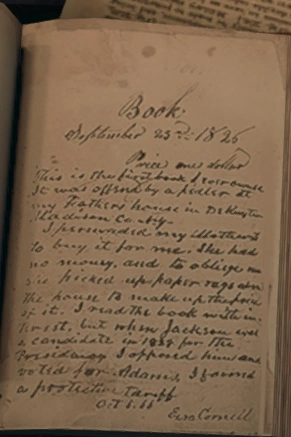 Book
September 23rd 1826
Price one dollar
This is the first book I ever owned
It was offered by a pedler at
my Fathers house in DeRuyter
Madison County.
I persuaded my Mother
to buy it for me. She had
no money, and to oblige me
she picked up paper rags in
the house to make up the price
of it. I read the book with in-
terest, but when Jackson was
a candidate in 1828 for the
Presidency I opposed him and
voted for Adams, I favored
a protective tariff
Oct
Ezra Cornell